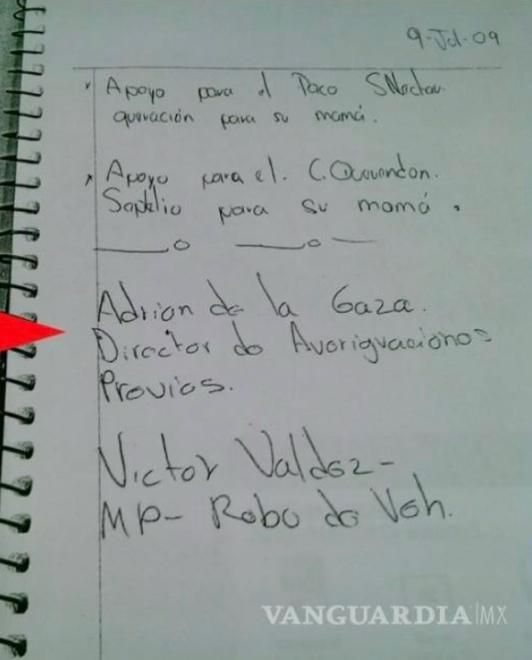 9-Jul-09
Apoyo para el Paco
operación para su mamá.
Apoyo para el. C.
para su mamá.
Adrian de la Gaza.
Director de Averiguaciones
Previas.
Victor Valdez-
MP- Robo de Veh.
VANGUARDIA|MX